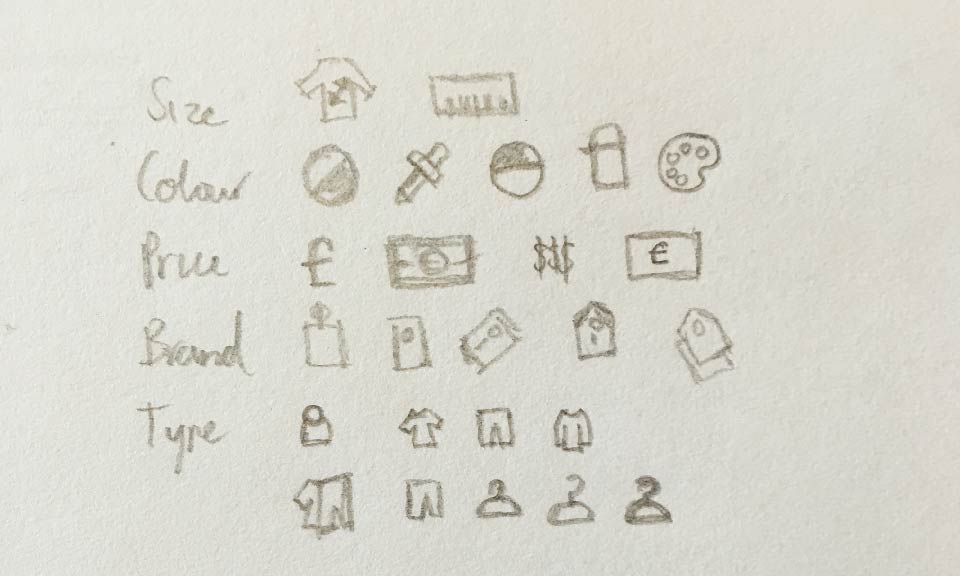 Size
Colour
Price £ € $$$ €
Brand
Type